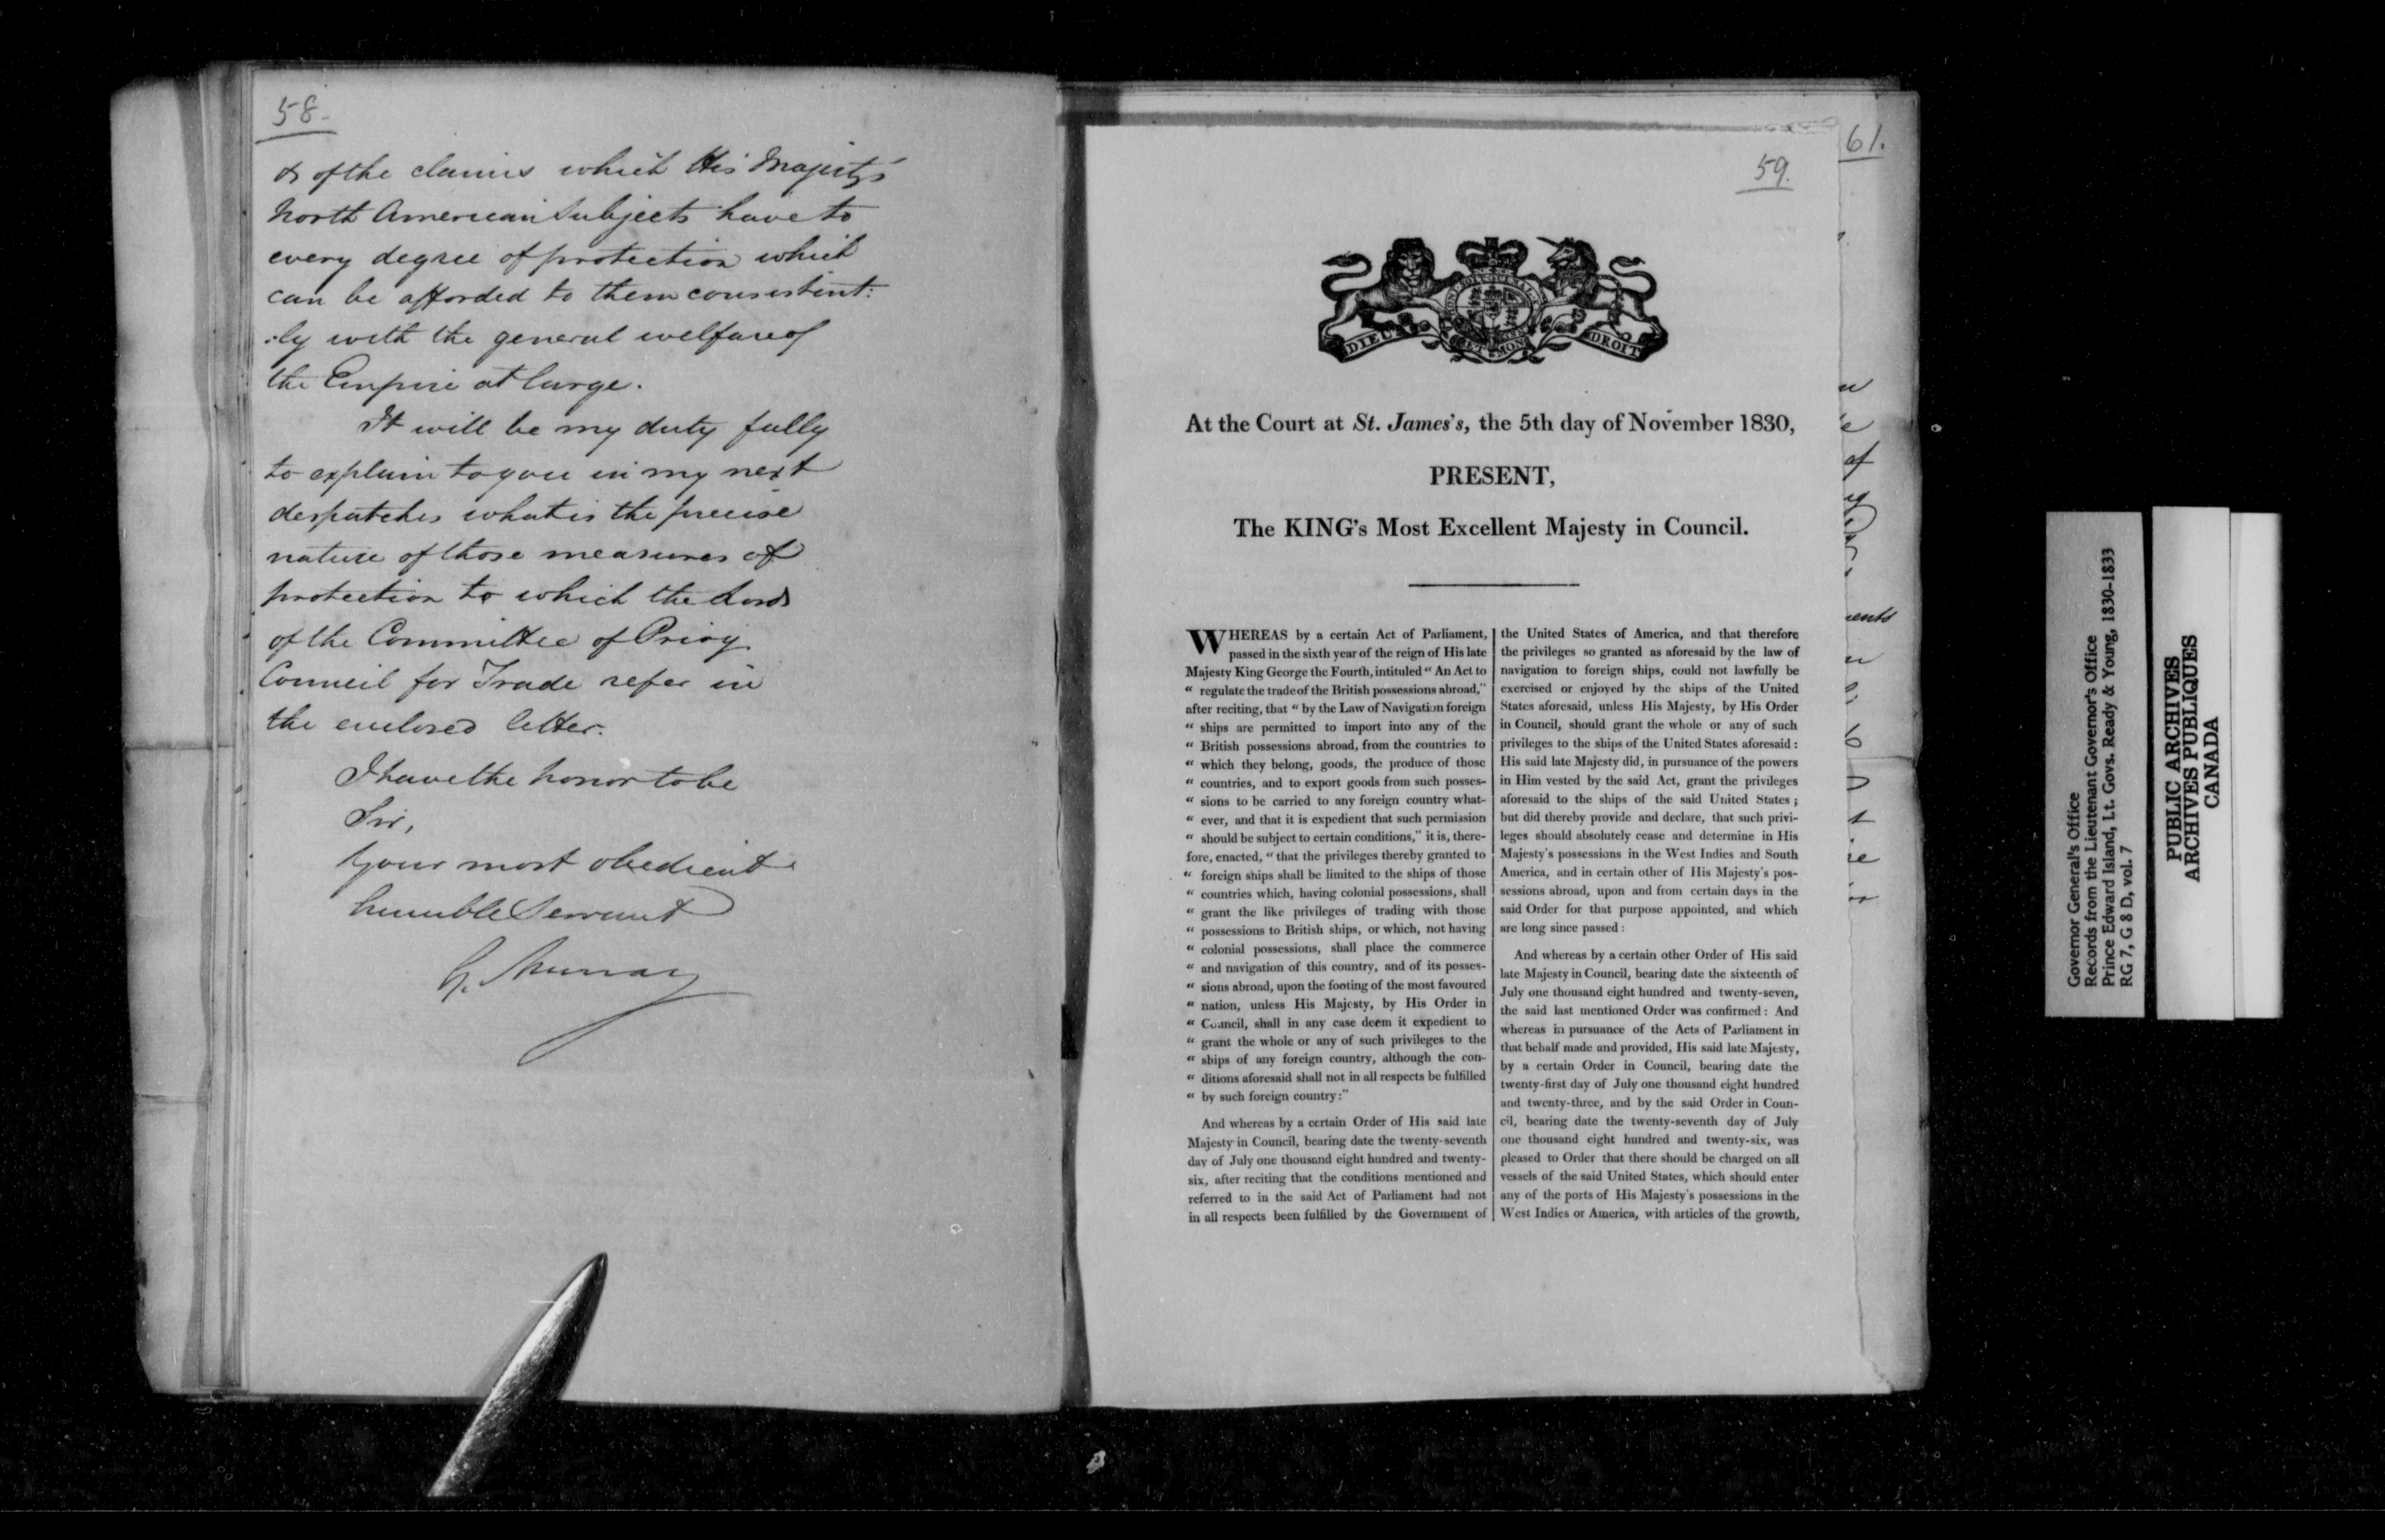 58.
& of the claims which His Majesty's
North American Subjects have to
every degree of protection which
can be afforded to them consistent:
:ly with the general welfare of
the Empire at large.
It will be my duty fully
to explain to you in my next
despatches what is the precise
nature of those measures of
protection to which the Lords
of the Committee of Privy
Council for Trade refer in
the enclosed letter.
I have the honor to be
Sir,
Your most obedient
humble Servant
G. Murray
59.
DIEU ET MON DROIT
At the Court at St. James's, the 5th day of November 1830,
PRESENT,
The KING's Most Excellent Majesty in Council.
WHEREAS by a certain Act of Parliament,
passed in the sixth year of the reign of His late
Majesty King George the Fourth, intituled “ An Act to
“ regulate the trade of the British possessions abroad,”
after reciting, that “ by the Law of Navigation foreign
“ ships are permitted to import into any of the
“ British possessions abroad, from the countries to
“ which they belong, goods, the produce of those
“ countries, and to export goods from such posses-
“ sions to be carried to any foreign country what-
“ ever, and that it is expedient that such permission
“ should be subject to certain conditions,” it is, there-
fore, enacted, “ that the privileges thereby granted to
“ foreign ships shall be limited to the ships of those
“ countries which, having colonial possessions, shall
“ grant the like privileges of trading with those
“ possessions to British ships, or which, not having
“ colonial possessions, shall place the commerce
“ and navigation of this country, and of its posses-
“ sions abroad, upon the footing of the most favoured
“ nation, unless His Majesty, by His Order in
“ Council, shall in any case deem it expedient to
“ grant the whole or any of such privileges to the
“ ships of any foreign country, although the con-
“ ditions aforesaid shall not in all respects be fulfilled
“ by such foreign country:”
And whereas by a certain Order of His said late
Majesty in Council, bearing date the twenty-seventh
day of July one thousand eight hundred and twenty-
six, after reciting that the conditions mentioned and
referred to in the said Act of Parliament had not
in all respects been fulfilled by the Government of
the United States of America, and that therefore
the privileges so granted as aforesaid by the law of
navigation to foreign ships, could not lawfully be
exercised or enjoyed by the ships of the United
States aforesaid, unless His Majesty, by His Order
in Council, should grant the whole or any of such
privileges to the ships of the United States aforesaid :
His said late Majesty did, in pursuance of the powers
in Him vested by the said Act, grant the privileges
aforesaid to the ships of the said United States ;
but did thereby provide and declare, that such privi-
leges should absolutely cease and determine in His
Majesty's possessions in the West Indies and South
America, and in certain other of His Majesty's pos-
sessions abroad, upon and from certain days in the
said Order for that purpose appointed, and which
are long since passed :
And whereas by a certain other Order of His said
late Majesty in Council, bearing date the sixteenth of
July one thousand eight hundred and twenty-seven,
the said last mentioned Order was confirmed : And
whereas in pursuance of the Acts of Parliament in
that behalf made and provided, His said late Majesty,
by a certain Order in Council, bearing date the
twenty-first day of July one thousand eight hundred
and twenty-three, and by the said Order in Coun-
cil, bearing date the twenty-seventh day of July
one thousand eight hundred and twenty-six, was
pleased to Order that there should be charged on all
vessels of the said United States, which should enter
any of the ports of His Majesty's possessions in the
West Indies or America, with articles of the growth,
61.
of
Governor General's Office
Records from the Lieutenant Governor's Office
Prince Edward Island, Lt. Govs. Ready & Young, 1830-1833
RG 7, G 8 D, vol. 7
PUBLIC ARCHIVES
ARCHIVES PUBLIQUES
CANADA